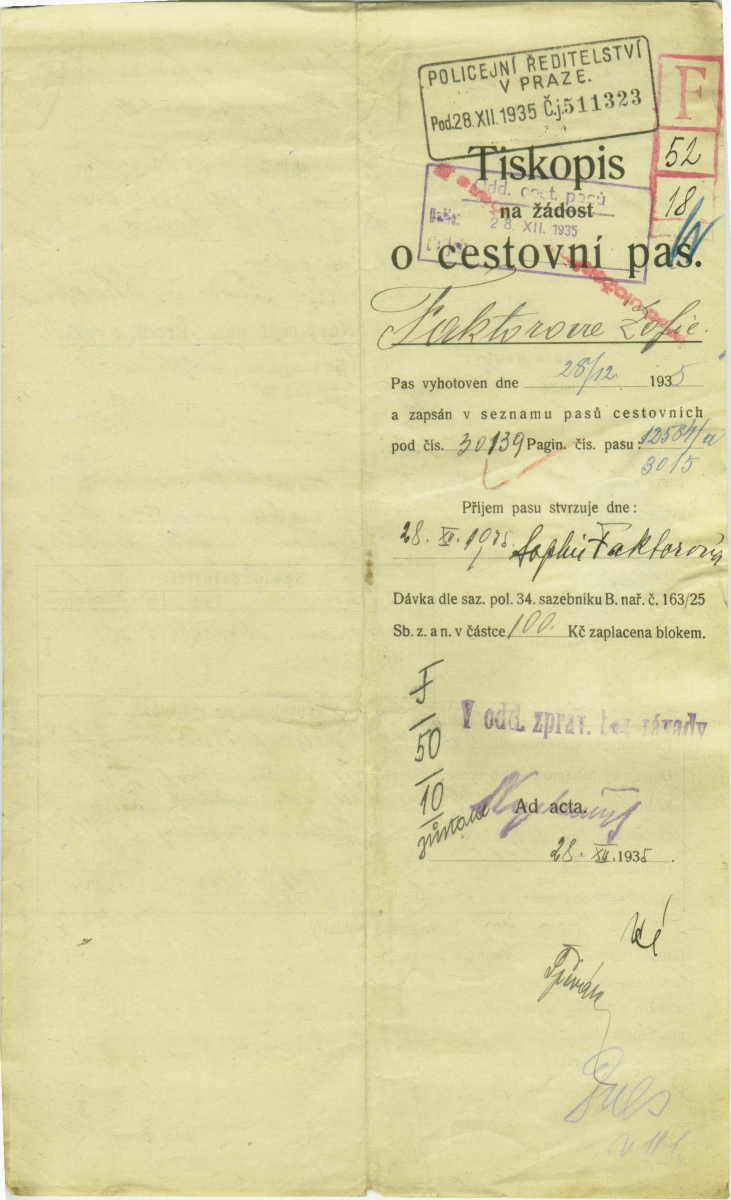 POLICEJNÍ ŘEDITELSTVÍ
V PRAZE.
Pod. 28. XII. 1935 Č.j. 511323
F
52
18
Tiskopis
Odd. cest. pasů
na žádost
28. XII. 1935
o cestovní pas.
Faktorova Zofie.
Pas vyhotoven dne 28/12 1935
a zapsán v seznamu pasů cestovních
pod čís. 30139 Pagin. čís. pasu: 12584/a
3015
Přijem pasu stvrzuje dne:
28. XII. 1935. Sophie Faktorová
Dávka dle saz. pol. 34. sazebníku B. nař. č. 163/25
Sb. z. a n. v částce 100.- Kč zaplacena blokem.
F
50
10
V odd. zpráv. bez závady
Ad acta.
28. XII. 1935.